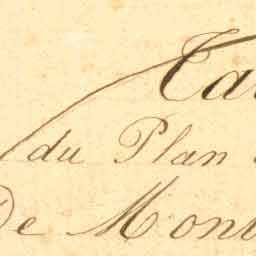 Ta
du Plan
De Mon